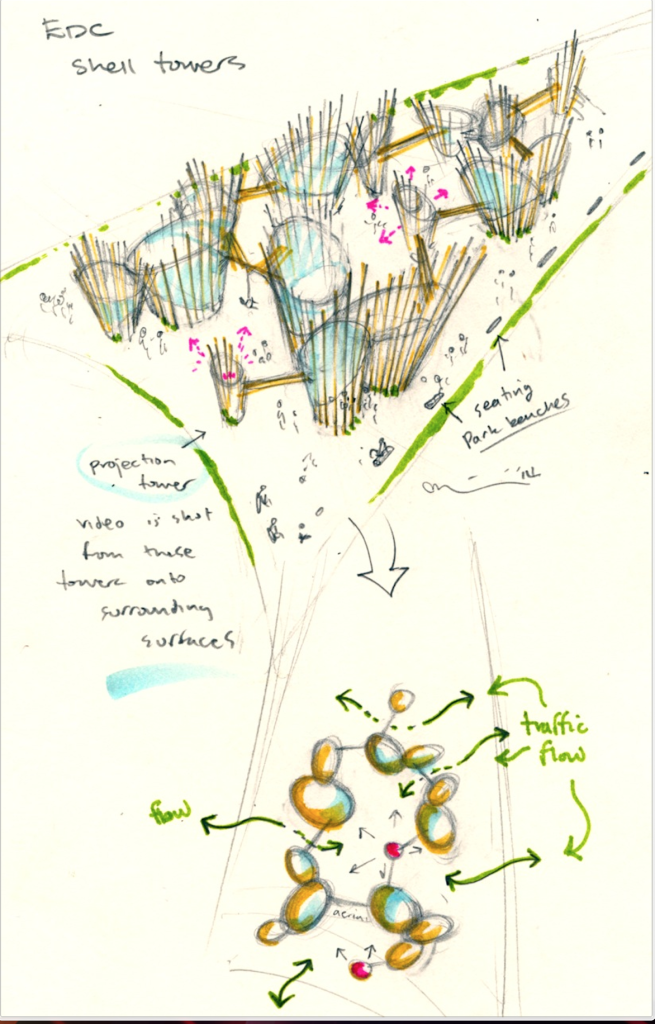 EDC
shell towers
seating
Park benches
projection
tower
video is shot
from these
towers onto
surrounding
surfaces
traffic
flow
flow